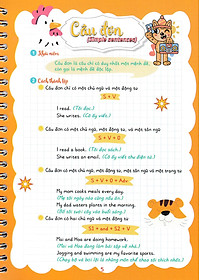 Câu đơn
(Simple sentences)
1 Khái niệm
Câu đơn là câu chỉ có duy nhất một mệnh đề,
còn gọi là mệnh đề độc lập.
2 Cách thành lập
Câu đơn chỉ có một chủ ngữ và một động từ
S + V
I read. (Tôi đọc.)
She writes. (Cô ấy viết.)
Câu đơn có một chủ ngữ, một động từ, và một tân ngữ
S + V + O
I read a book. (Tôi đọc sách.)
She writes an email. (Cô ấy viết thư điện tử.)
Câu đơn có một chủ ngữ, một động từ, một tân ngữ và một trạng từ
S + V + O + Adv
My mom cooks meals every day.
(Mẹ tôi ngày nào cũng nấu ăn.)
My dad waters plants in the morning.
(Bố tôi tưới cây vào buổi sáng.)
Câu đơn có hai chủ ngữ và một động từ
S1 + and + S2 + V
Mai and Hoa are doing homework.
(Mai và Hoa đang làm bài tập về nhà.)
Jogging and swimming are my favorite sports.
(Chạy bộ và bơi lội là những môn thể thao tôi thích nhất.)
5